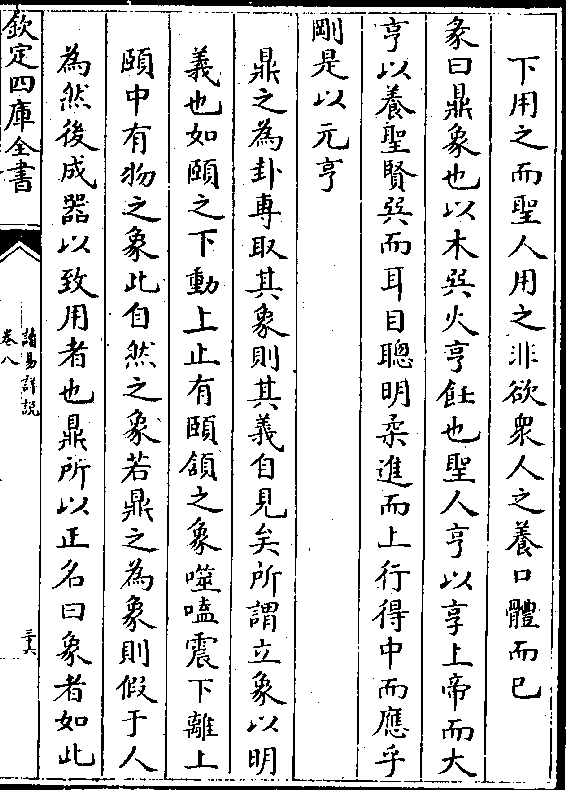 下用之而聖人用之非欲衆人之養口體而已
彖曰鼎象也以木㢲火亨飪也聖人亨以享上帝而大
亨以養聖賢㢲而耳目聰明柔進而上行得中而應乎
剛是以元亨
鼎之為卦專取其象則其義自見矣所謂立象以明
義也如頤之下動上止有頤頷之象噬嗑震下離上
頤中有物之象此自然之象若鼎之為象則假于人
為然後成器以致用者也鼎所以正名曰象者如此
欽定四庫全書
讀易詳説
卷八
三十六